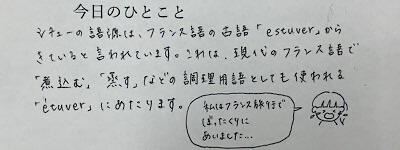 今日のひとこと
シチューの語源は、フランス語の古語「estuver」から
きていると言われています。これは、現代のフランス語で
「煮込む」「蒸す」などの調理用語としても使われる
「étuver」にあたります。
私はフランス旅行で
ぼったくりに
あいました…